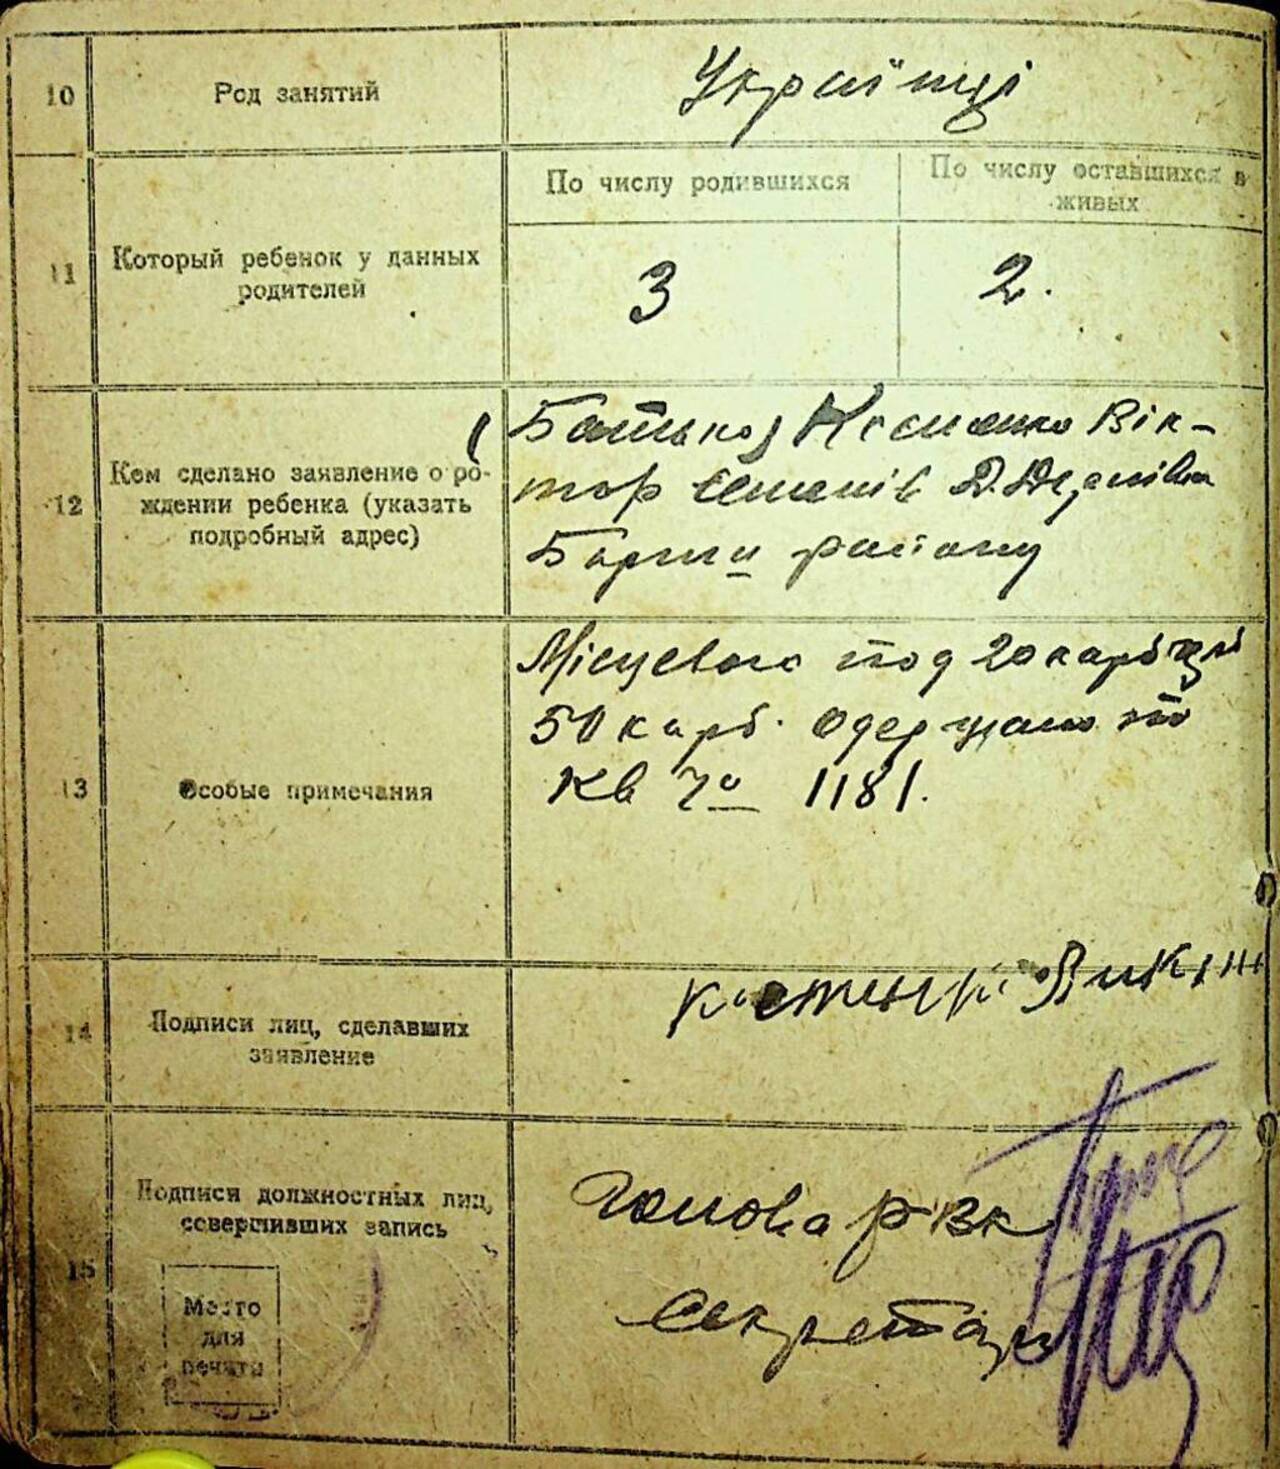 10 Род занятий Українці
11 Который ребенок у данных родителей
По числу родившихся
По числу оставшихся в живых
3
2.
12 Кем сделано заявление о ро-
ждении ребенка (указать
подробный адрес)
Батько Вік-
тор
району
13 Особые примечания
Місцевого под 20 карб
50 карб. одержано по
кв № 1181.
14 Подписи лиц, сделавших
заявление
15 Подписи должностных лиц,
совершивших запись
Место
для
печати
Голова
Секретар